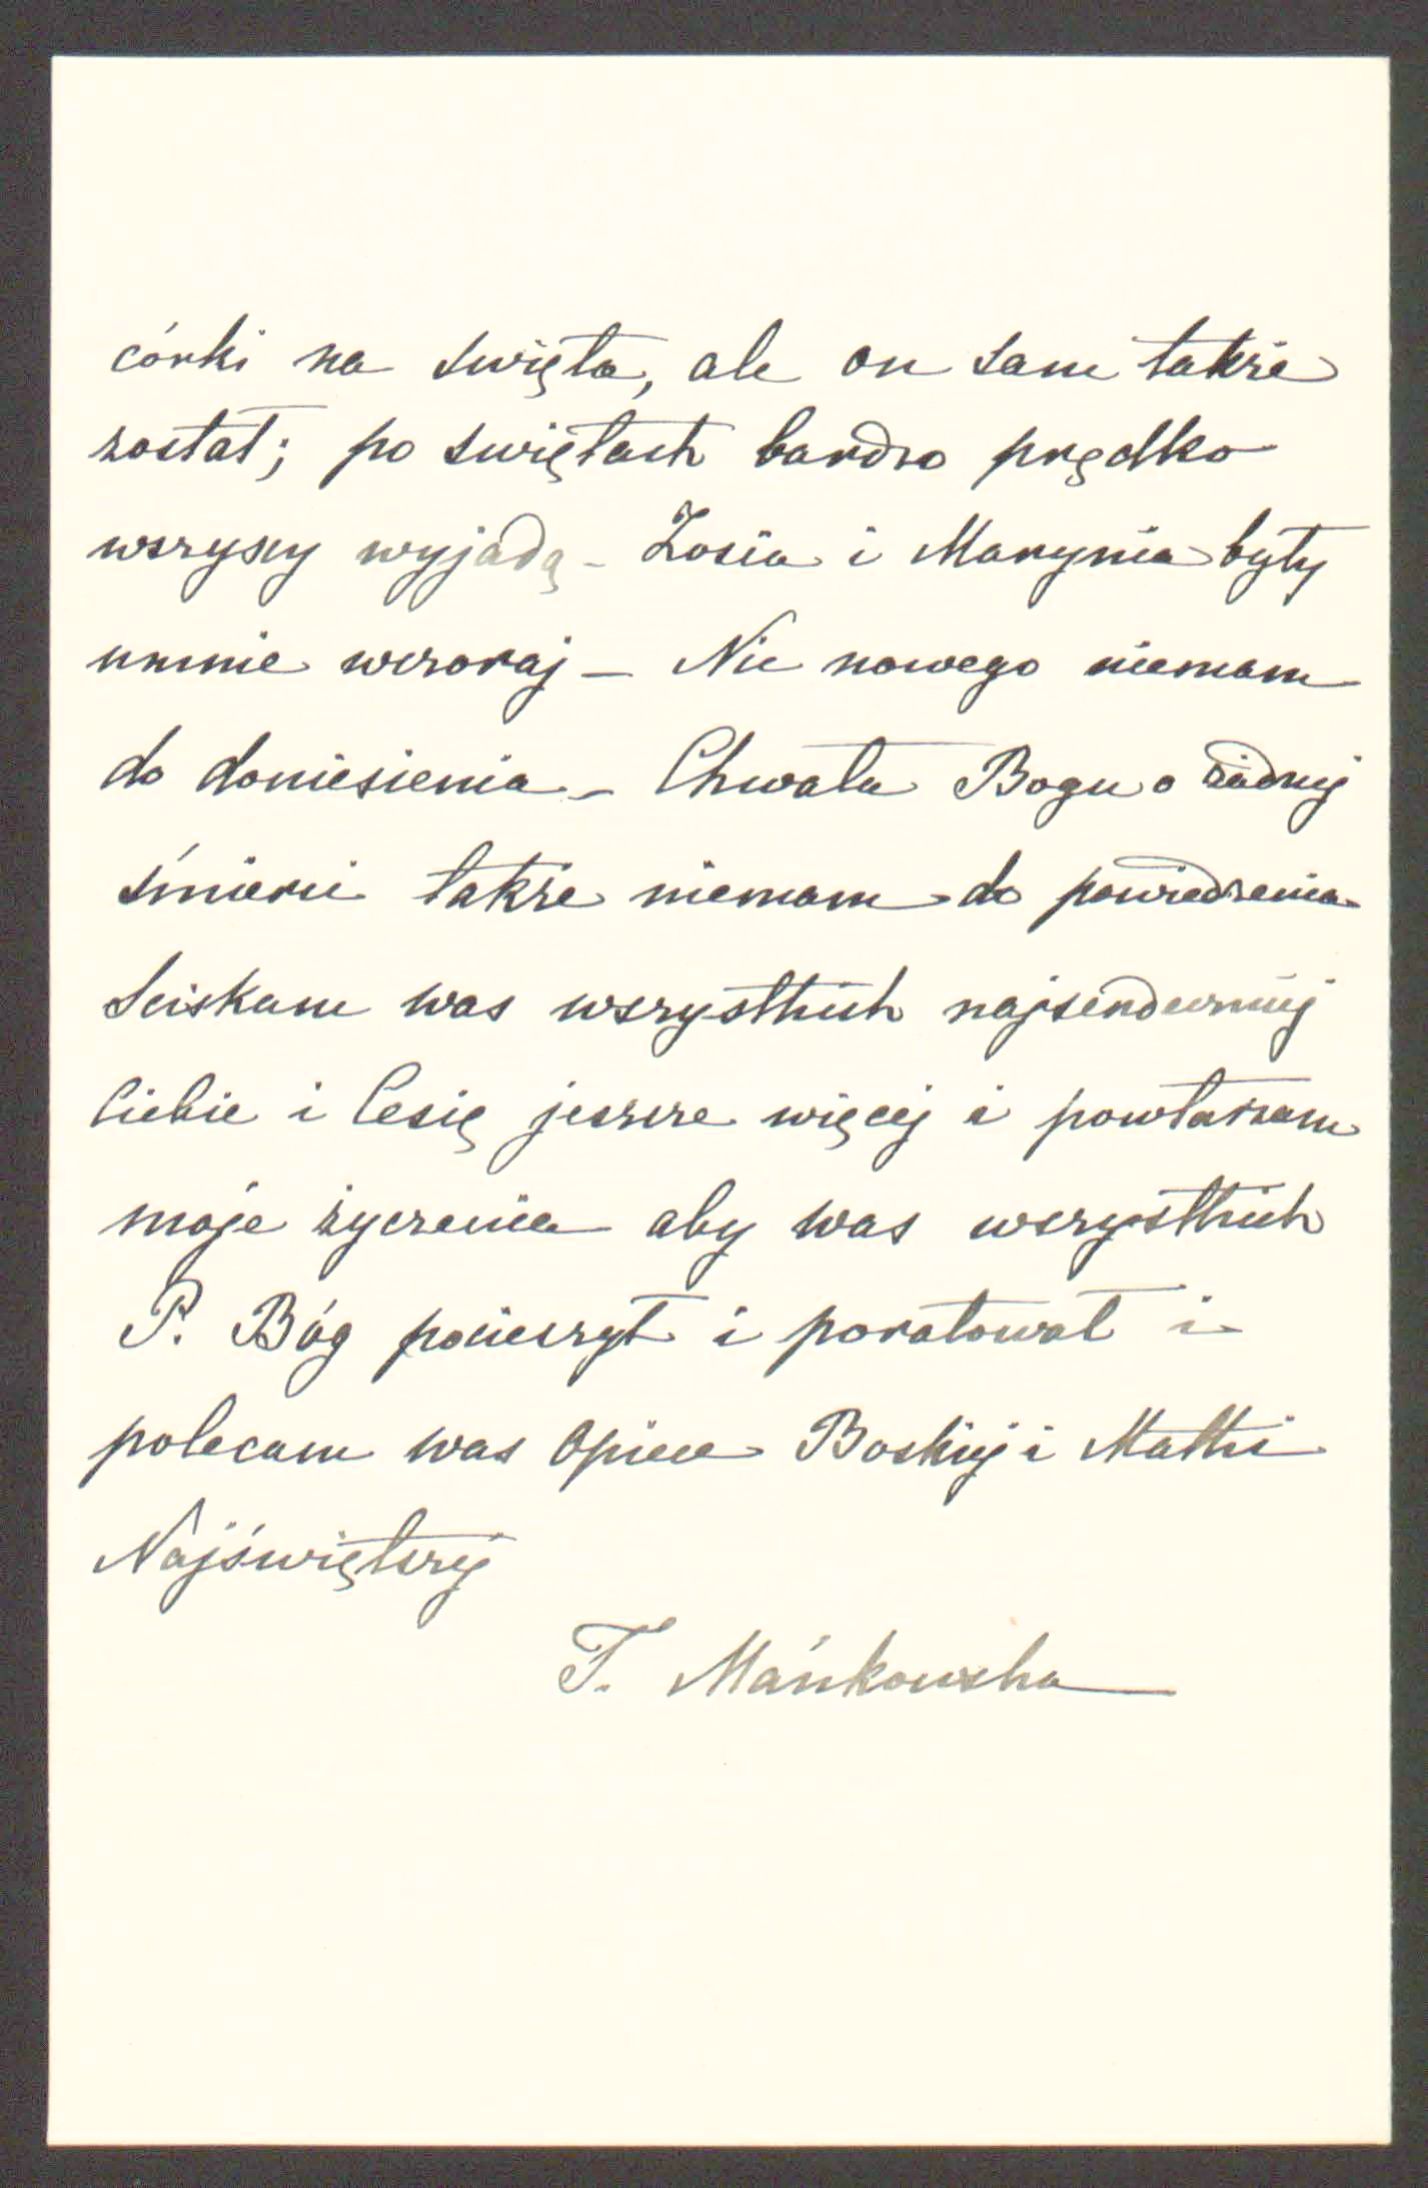 córki na swięta, ale on sam także
został; po swiętach bardzo prędko
wszyscy wyjadą - Zosia i Marynia były
umnie wczoraj - Nic nowego niemam
do doniesienia - Chwała Bogu o żadnej
śmierci także niemam do powiedzenia
Sciskam was wszystkich najserdeczniej
Ciebie i Cesię jeszcze więcej i powtarzam
moje życzenia aby was wszystkich
P. Bóg pocieszył i poratował i
polecam was Opiece Boskiej i Matki
Najświętszej
T. Mańkowska